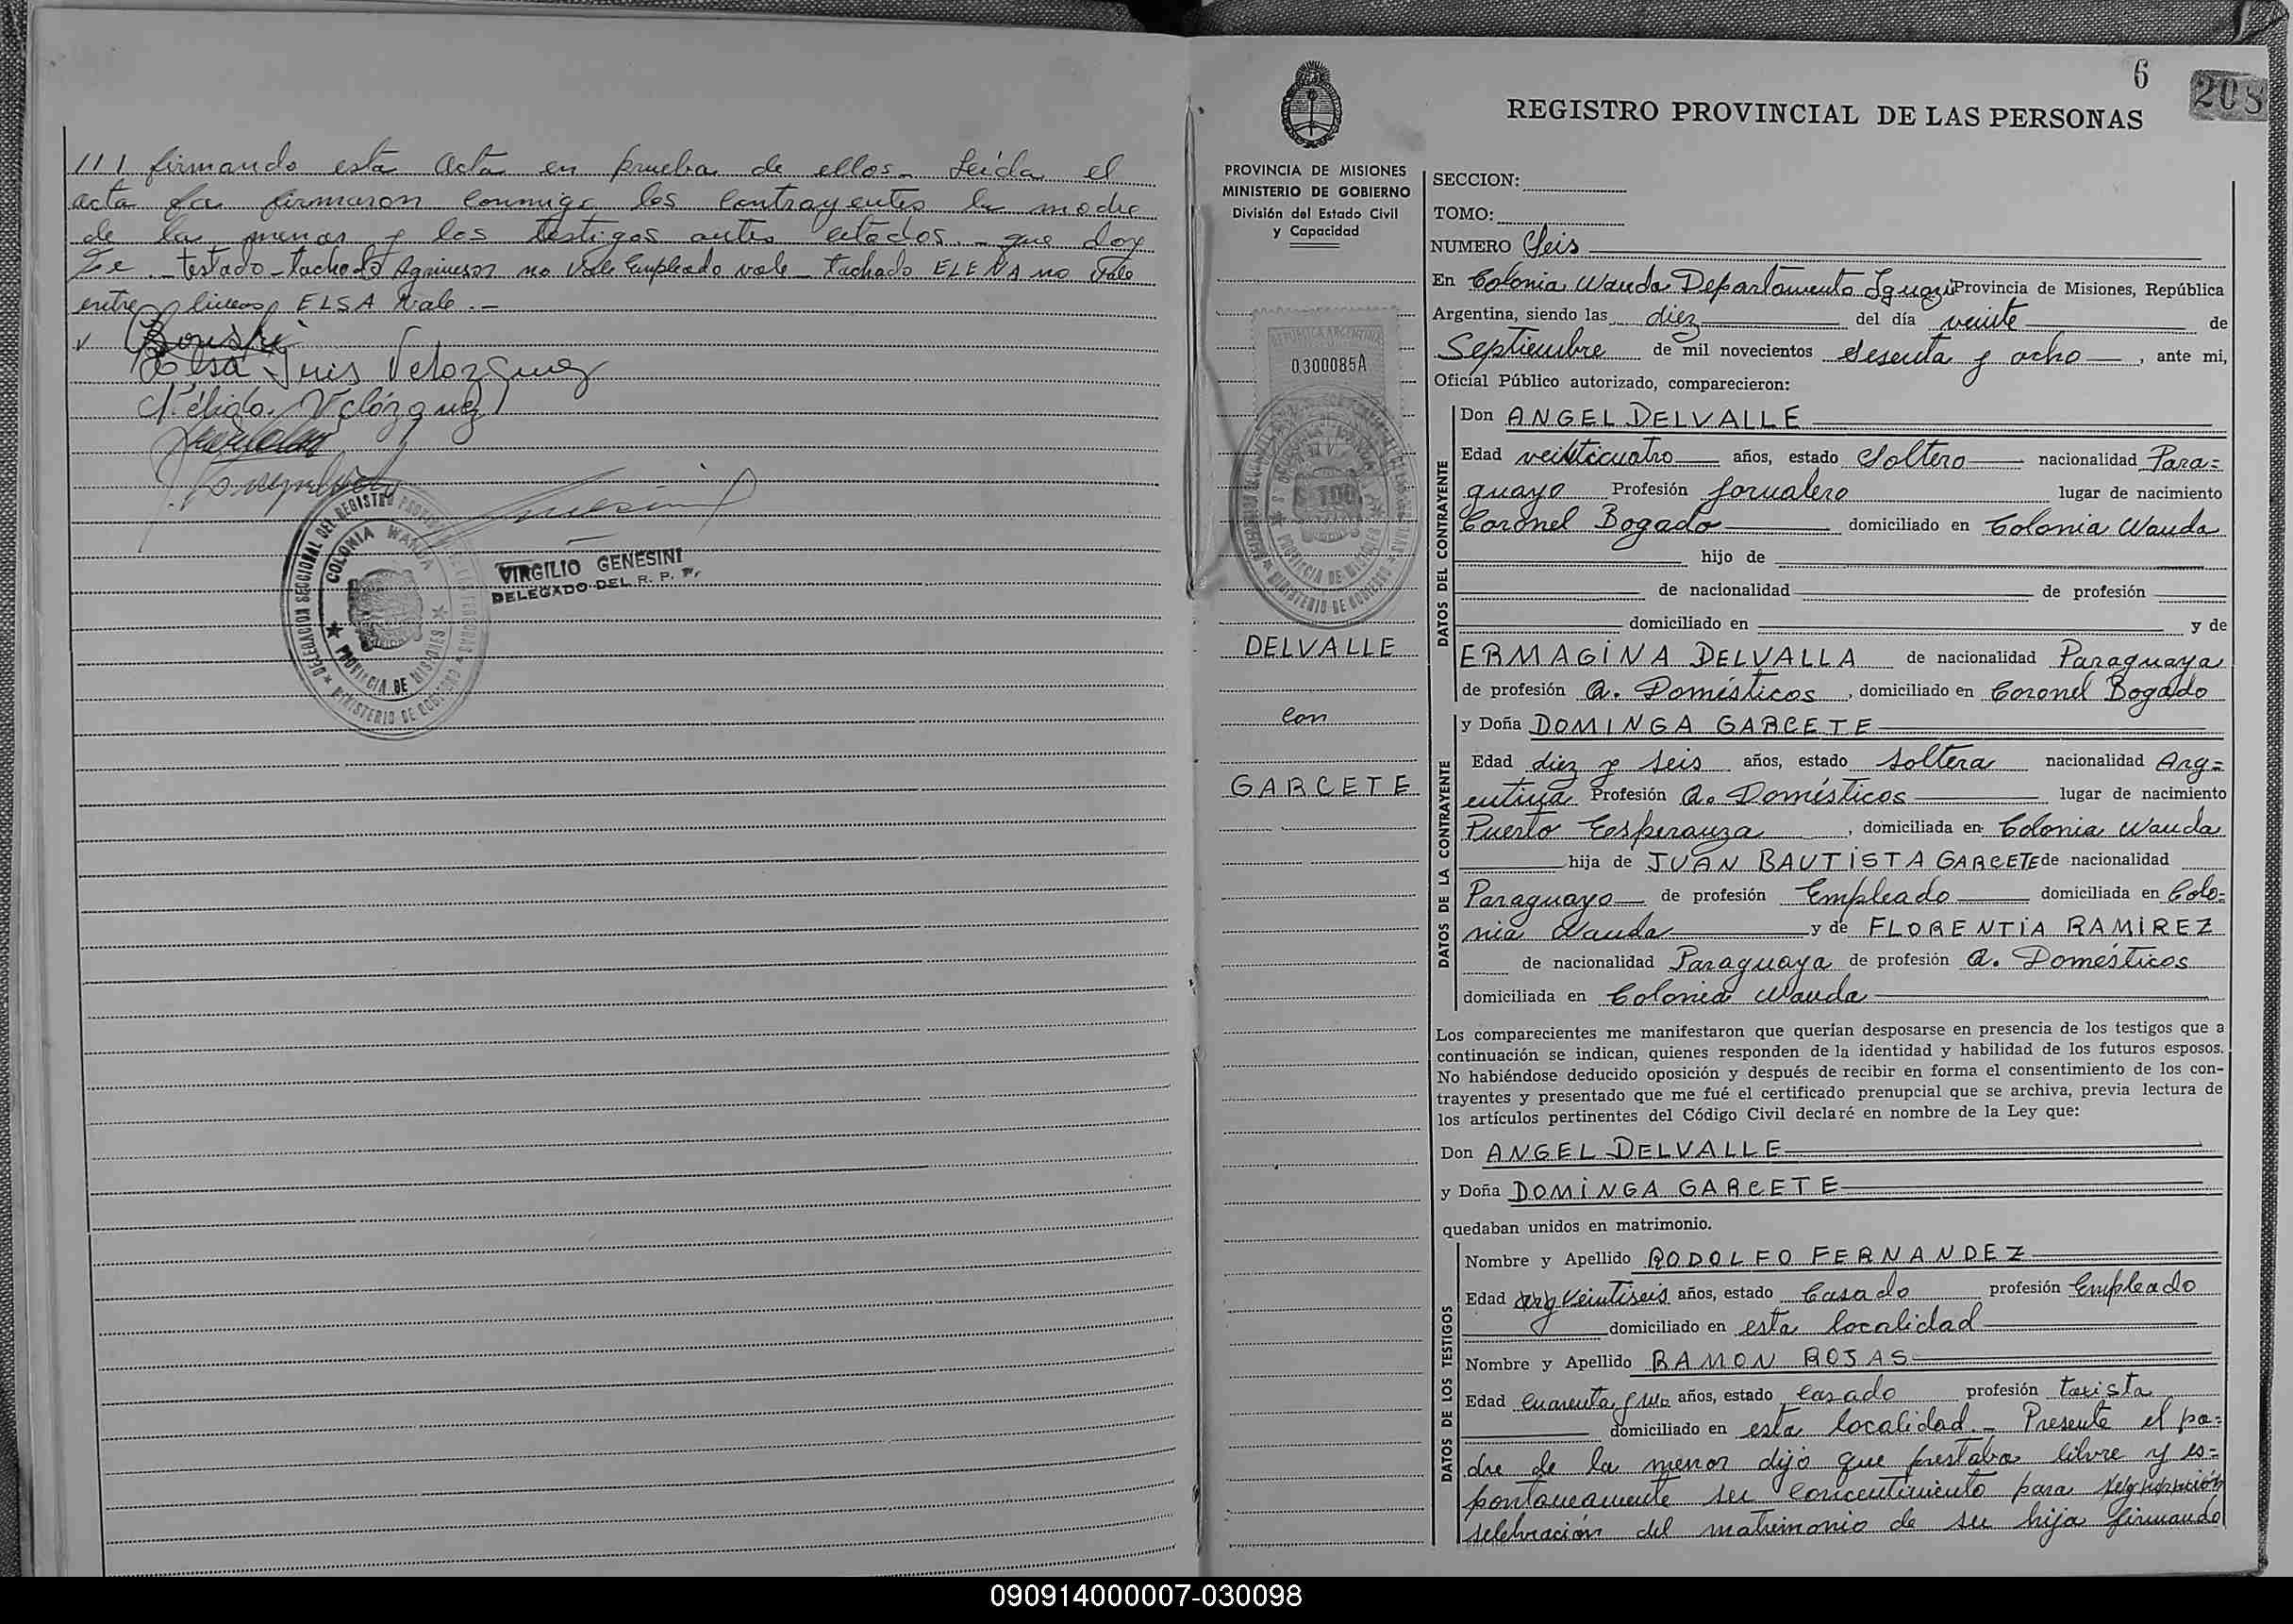 111 firmando esta acta en prueba de ellos.- Leída el
acta la firmaron conmigo los contrayentes la madre
de la menor y los testigos antes citados.- que doy
Fe.- testado-tachado Agrimesor no vale Empleado vale- tachado ELENA no vale
entre lineas ELSA vale.-
Elsa Velozquez
Nélida Velózquez
DELEGACION SECCIONAL DEL REGISTRO
COLONIA WANDA
PROVINCIA DE MISIONES
MINISTERIO DE GOBIERNO
VIRGILIO GENESINI
DELEGADO DEL R. P. P.
6
208
REGISTRO PROVINCIAL DE LAS PERSONAS
PROVINCIA DE MISIONES
MINISTERIO DE GOBIERNO
División del Estado Civil
y Capacidad
REPUBLICA ARGENTINA
0.300085A
PROVINCIA DE MISIONES
MINISTERIO DE GOBIERNO
DELVALLE
con
GARCETE
SECCION:
TOMO:
NUMERO Seis
En Colonia Wanda Departamento Iguazú Provincia de Misiones, República
Argentina, siendo las diez del día veinte de
Septiembre de mil novecientos sesenta y ocho, ante mi,
Oficial Público autorizado, comparecieron:
DATOS DEL CONTRAYENTE
Don ANGEL DELVALLE
Edad veinticuatro años, estado Soltero nacionalidad Para=
guayo Profesión Jornalero lugar de nacimiento
Coronel Bogado domiciliado en Colonia Wanda
hijo de
de nacionalidad de profesión
domiciliado en y de
ERMAGINA DELVALLA de nacionalidad Paraguaya
de profesión Q. Domésticos, domiciliado en Coronel Bogado
DATOS DE LA CONTRAYENTE
y Doña DOMINGA GARCETE
Edad diez y seis años, estado soltera nacionalidad Arg=
entina Profesión Q. Domésticos lugar de nacimiento
Puerto Esperanza, domiciliada en Colonia Wanda
hija de JUAN BAUTISTA GARCETE de nacionalidad
Paraguayo de profesión Empleado domiciliada en Colo=
nia Wanda y de FLORENTIA RAMIREZ
de nacionalidad Paraguaya de profesión Q. Domésticos
domiciliada en Colonia Wanda
Los comparecientes me manifestaron que querían desposarse en presencia de los testigos que a
continuación se indican, quienes responden de la identidad y habilidad de los futuros esposos.
No habiéndose deducido oposición y después de recibir en forma el consentimiento de los con-
trayentes y presentado que me fué el certificado prenupcial que se archiva, previa lectura de
los artículos pertinentes del Código Civil declaré en nombre de la Ley que:
Don ANGEL DELVALLE
y Doña DOMINGA GARCETE
quedaban unidos en matrimonio.
DATOS DE LOS TESTIGOS
Nombre y Apellido RODOLFO FERNANDEZ
Edad veintiseis años, estado Casado profesión Empleado
domiciliado en esta localidad
Nombre y Apellido RAMON ROJAS
Edad cuarenta y uno años, estado casado profesión taxista
domiciliado en esta localidad.- Presente el pa=
dre de la menor dijo que prestaba libre y es=
pontaneamente su concentimiento para
selebración del matrimonio de su hija firmando
090914000007-030098